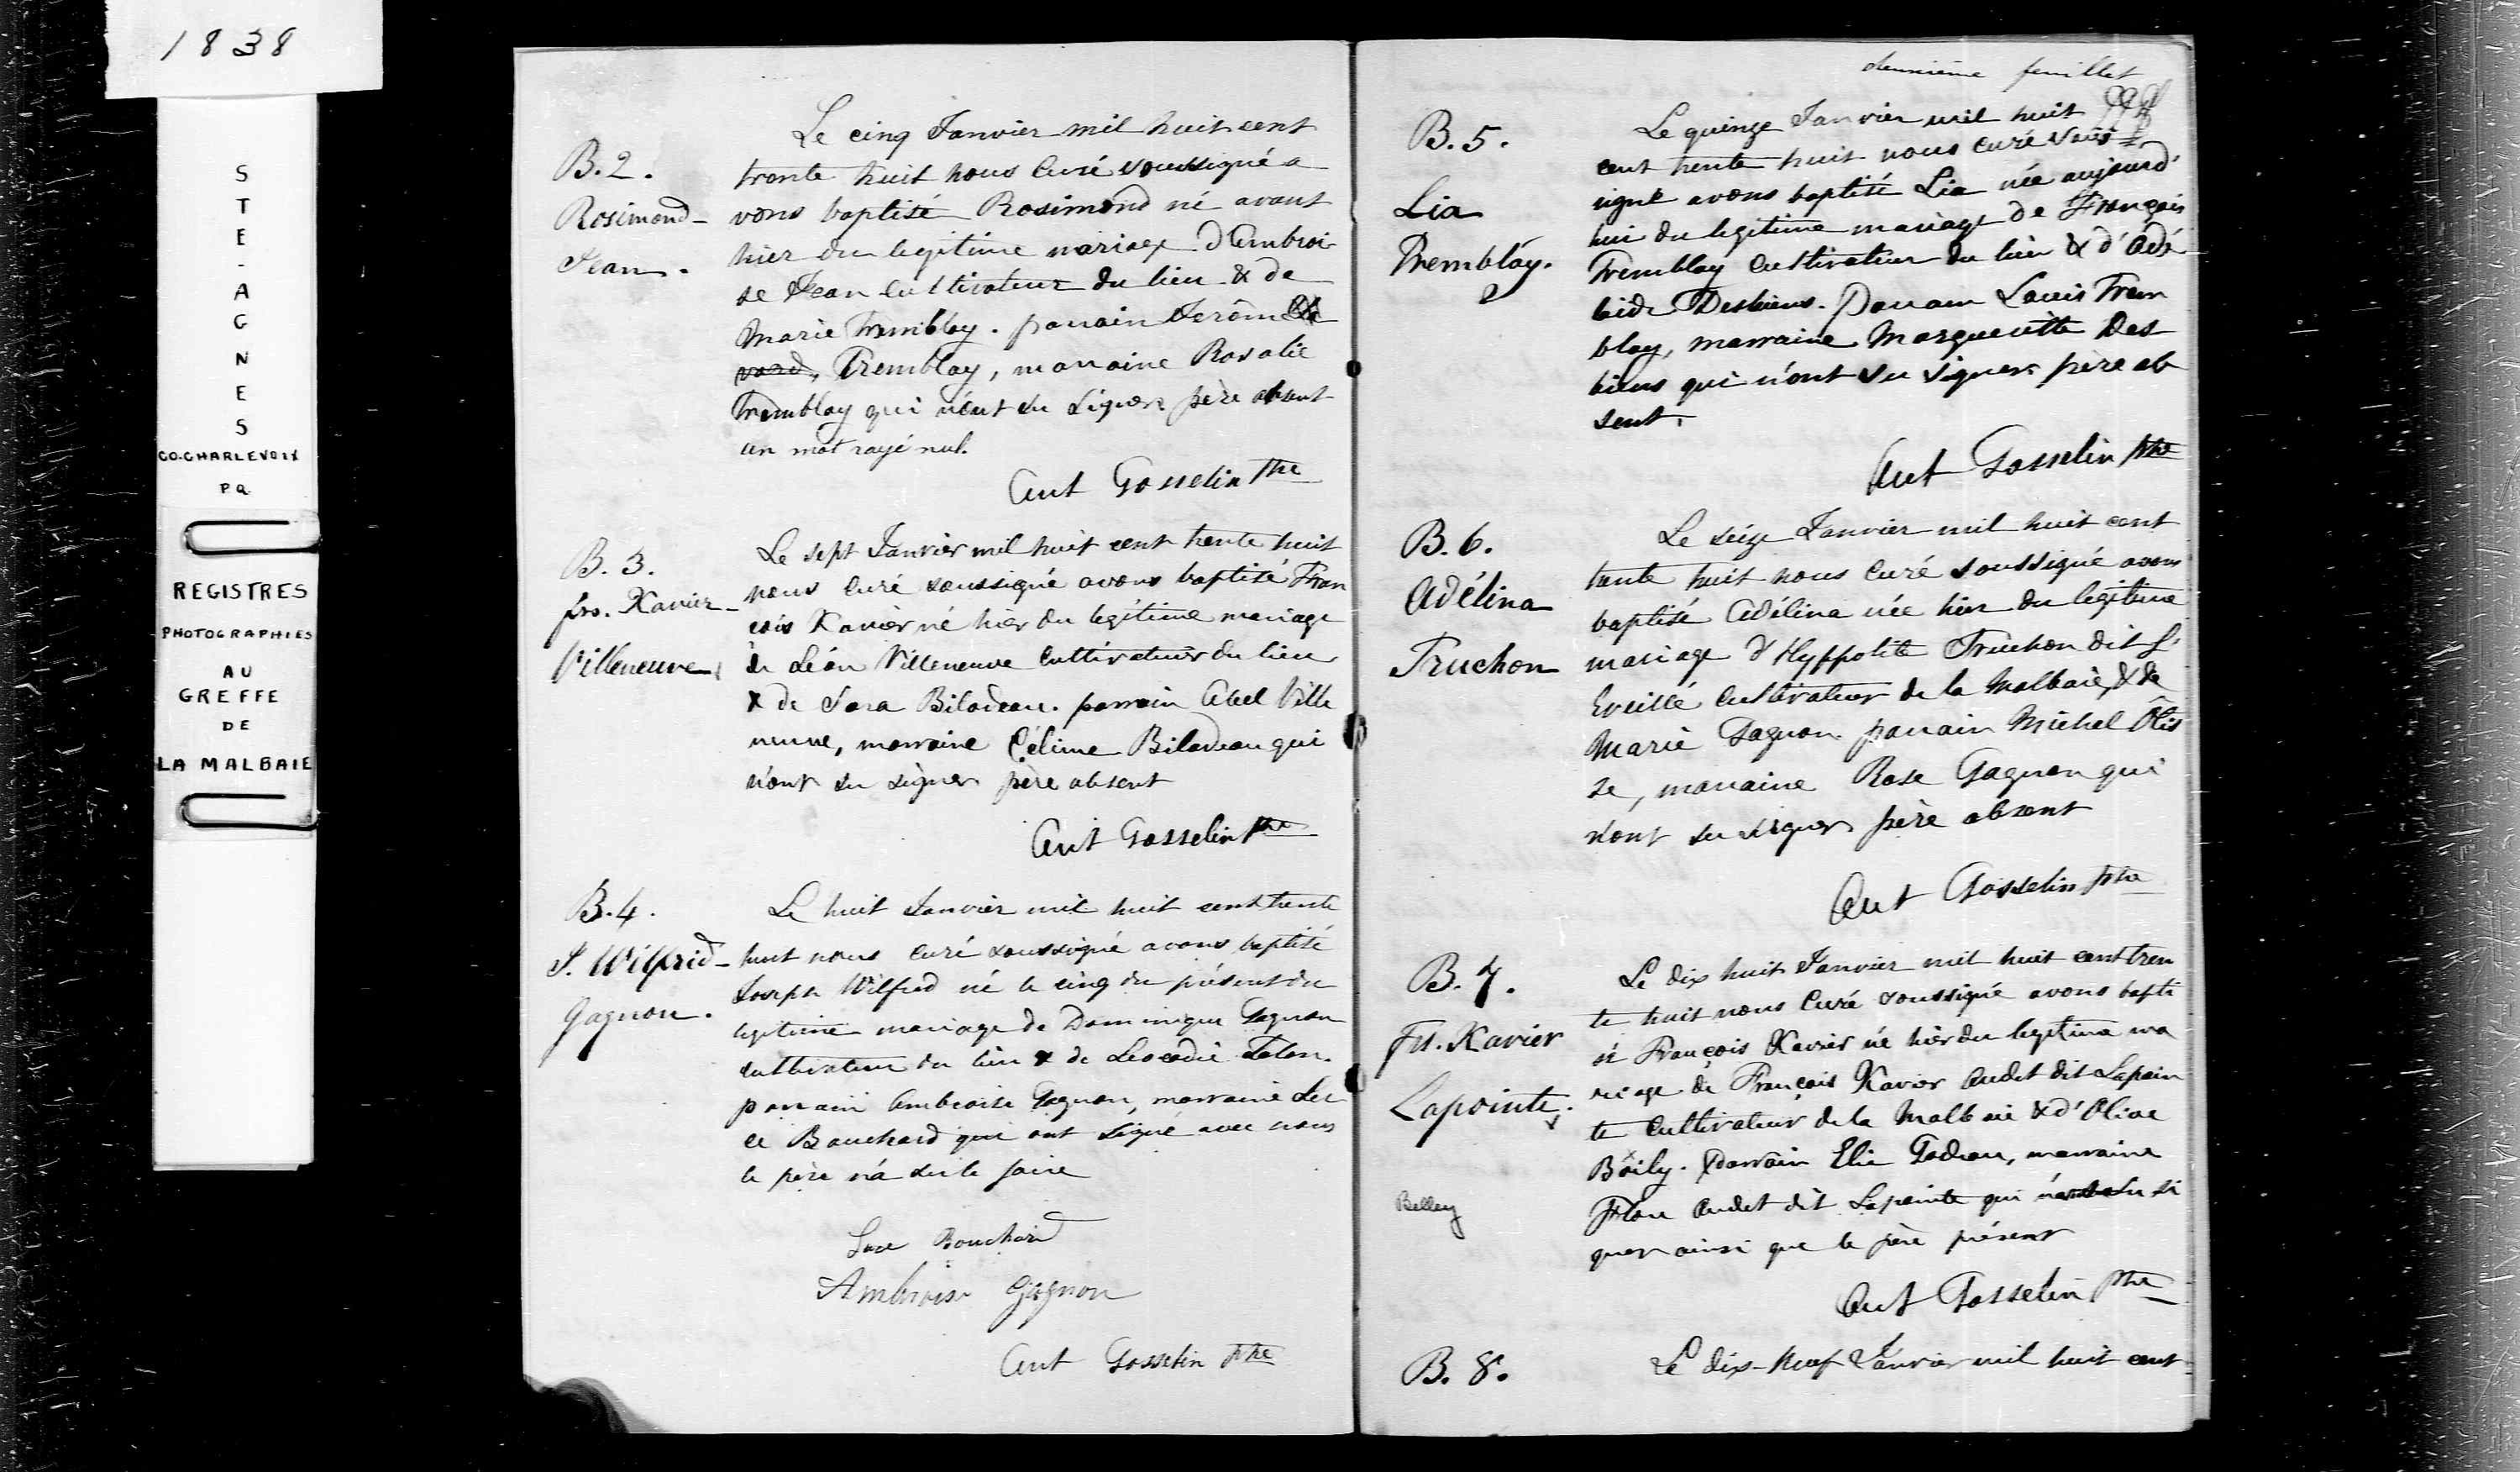 1838
STE-AGNES
CO. CHARLEVOIX
P.Q.
REGISTRES
PHOTOGRAPHIES
AU
GREFFE
DE
LA MALBAIE
B. 2.
Rosimond
Jean.
Le cinq Janvier mil huit cent
trente huit nous Curé soussigné a
vons baptisé Rosimond né avant
hier du legitime mariage d'Ambroi
se Jean Cultivateur du lieu & de
Marie Tremblay. parrain Jerôme
Tremblay, marraine Rosalie
Tremblay qui n'ont su signer père absent
un mot rayé nul.
Ant Gosselin Ptre
B. 3.
frs. Xavier
Villeneuve
Le sept Janvier mil huit cent trente huit
nous Curé soussigné avons baptisé Fran
çois Xavier né hier du legitime mariage
de Léon Villeneuve Cultivateur du lieu
& de Sara Bilodeau. parrain Abel Ville
neuve, marraine Célime Bilodeau qui
n'ont su signer père absent
Ant Gosselin Ptre
B. 4.
J. Wilfrid
Gagnon.
Le huit Janvier mil huit cent trente
huit nous curé soussigné avons baptisé
Joseph Wilfrid né le cinq du présent du
legitime mariage de Dominique Gagnon
cultivateur du lieu & de Leocadie
parrain Ambroise Gagnon, marraine Lu
ce Bouchard qui ont signé avec nous
le père n'a su le faire
Luce Bouchard
Ambroise Gagnon
Ant Gosselin Ptre
deuxième feuillet
B. 5.
Lia
Tremblay.
Le quinze Janvier mil huit
cent trente huit nous curé sous
signé avons baptisé Lia née aujourd'
hui du legitime mariage de François
Tremblay Cultivateur du lieu & d'Adé
laide Desbiens. Parrain Louis Trem
blay, marraine Marguerite Des
biens qui n'ont su signer père ab
sent.
Ant Gosselin Ptre
B. 6.
Adélina
Truchon
Le seize Janvier mil huit cent
trente huit nous Curé soussigné avons
baptisé Adélina née hier du legitime
mariage d'Hyppolite Truchon dit L'
Eveillé Cultivateur de la Malbaie, & de
Marie Gagnon parrain Michel Otis
se, marraine Rose Gagnon qui
n'ont su signer père absent
Ant Gosselin Ptre
B. 7.
Frs. Xavier
Lapointe.
Belley
Le dix huit Janvier mil huit cent tren
te huit nous Curé soussigné avons bapti
sé François Xavier né hier du legitime ma
riage de François Xavier Audet dit Lapoin
te Cultivateur de la Malbaie & d'Olive
Boily. Parrain Elie Godreau, marraine
Flore Audet dit Lapointe qui n'ont su si
gner ainsi que le père présent
Ant Gosselin Ptre
B. 8.
Le dix-neuf Janvier mil huit cent